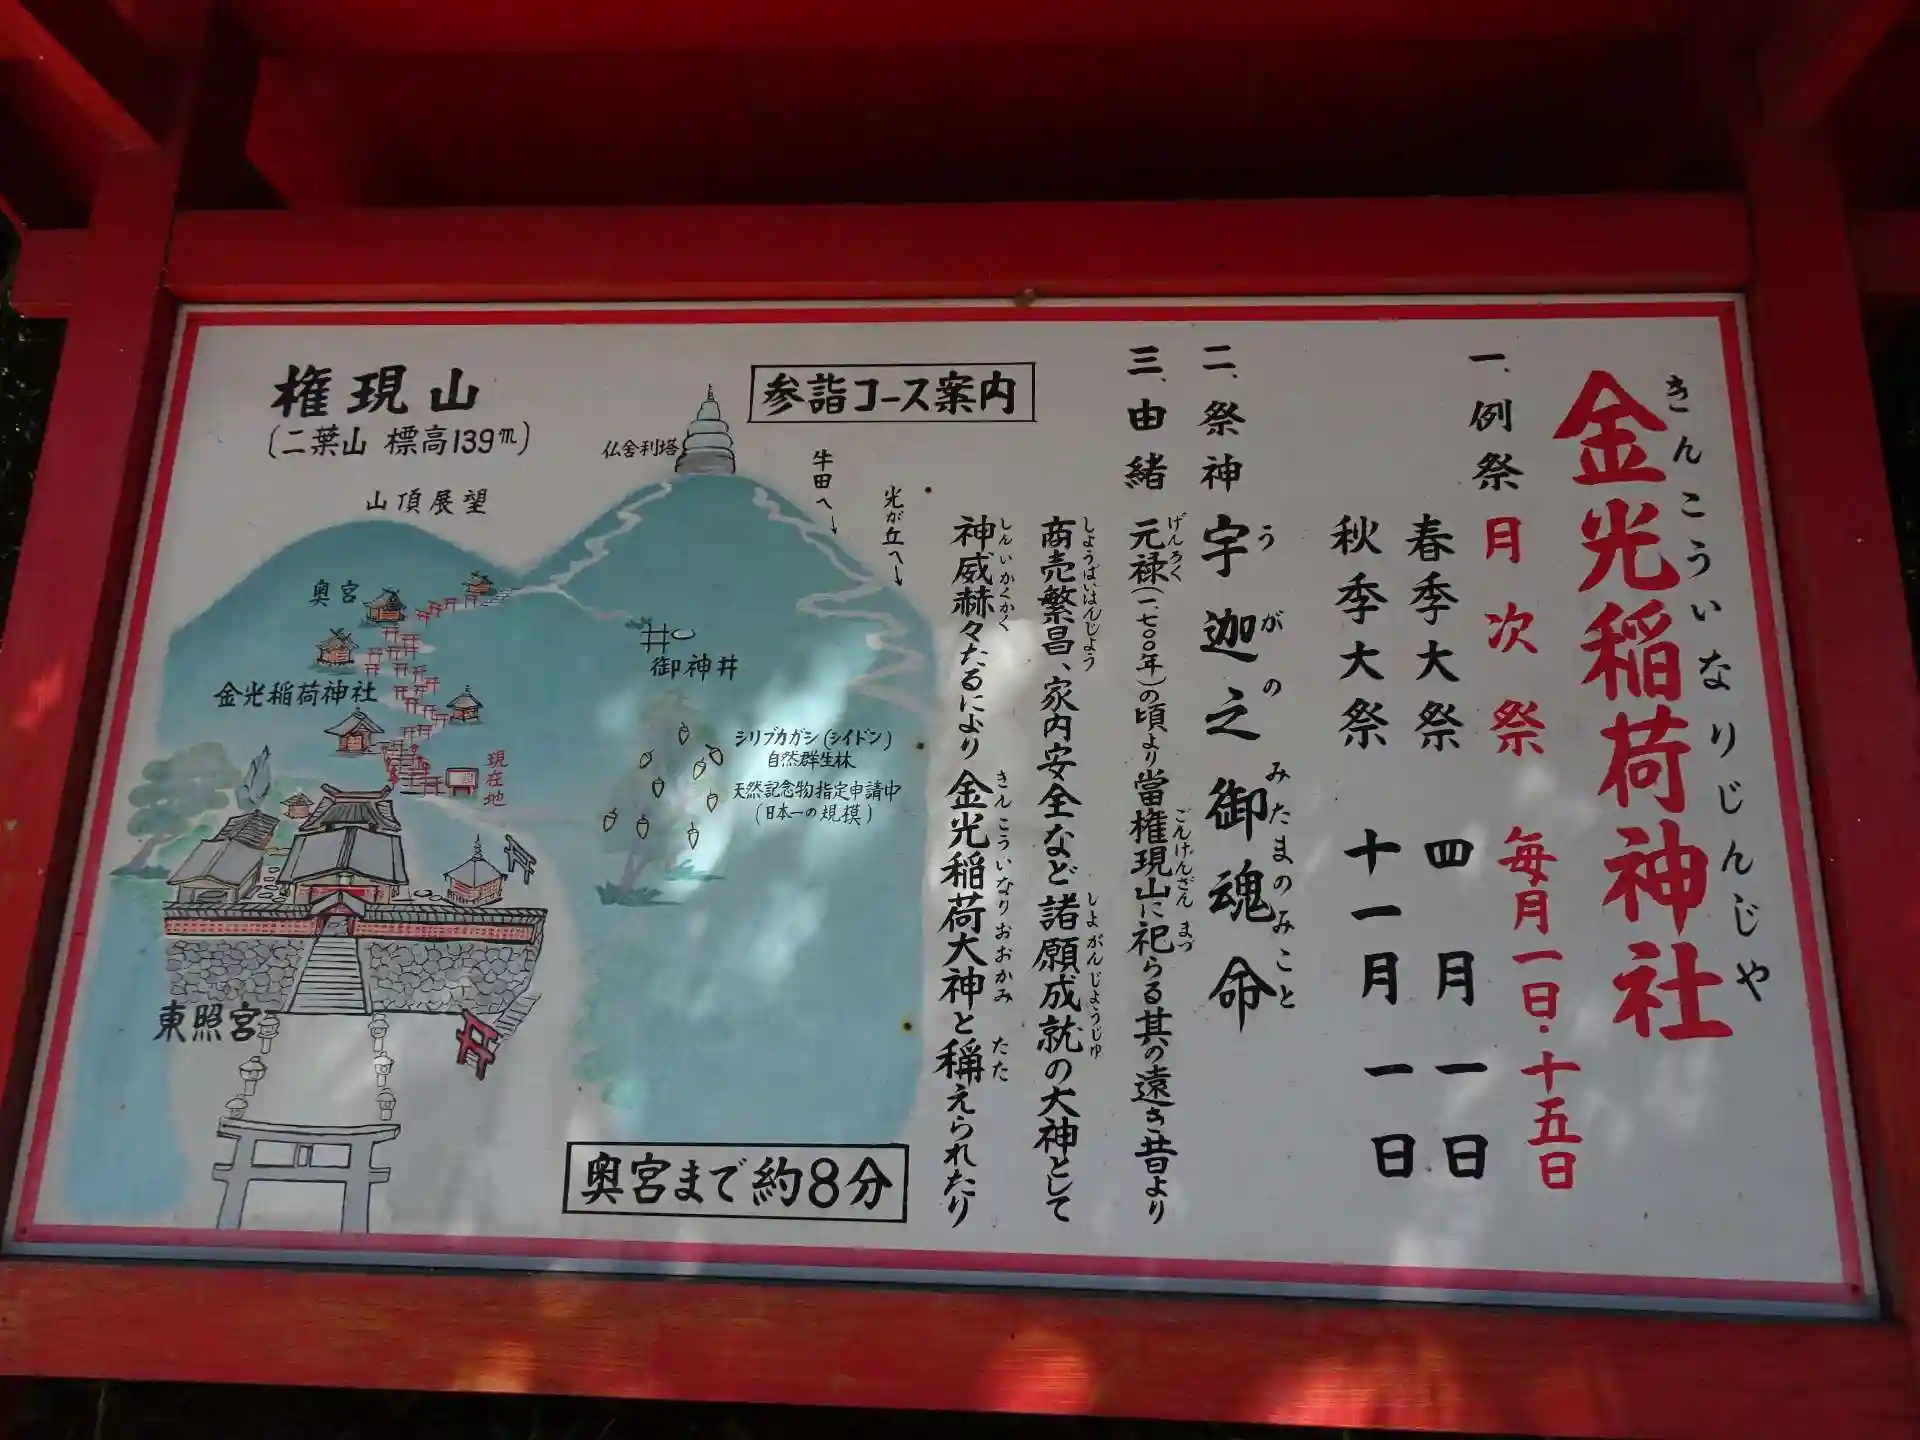 金光稲荷神社
きんこういなりじんじゃ
一、例祭 月次祭 毎月一日・十五日
春季大祭 四月一日
秋季大祭 十一月一日
二、祭神 宇迦之御魂命
うがのみたまのみこと
三、由緒 元禄(一、七〇〇年)の頃より當権現山に祀らる其の遠き昔より
げんろく ごんげんざん まつ
商売繁昌、家内安全など諸願成就の大神として
しようばいはんじよう しよがんじようじゆ
神威赫々たるにより金光稲荷大神と稱えられたり
しんいかくかく きんこういなりおおかみ たた
参詣コース案内
権現山
(二葉山 標高139m)
山頂展望
仏舎利塔
牛田へ↓
光が丘へ↓
奥宮
御神井
金光稲荷神社
現在地
シリブカガシ(シイドン)
自然群生林
天然記念物指定申請中
(日本一の規模)
東照宮
奥宮まで約8分